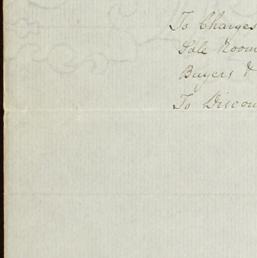 To Charges
Sale Room
Buyers &
To Discou